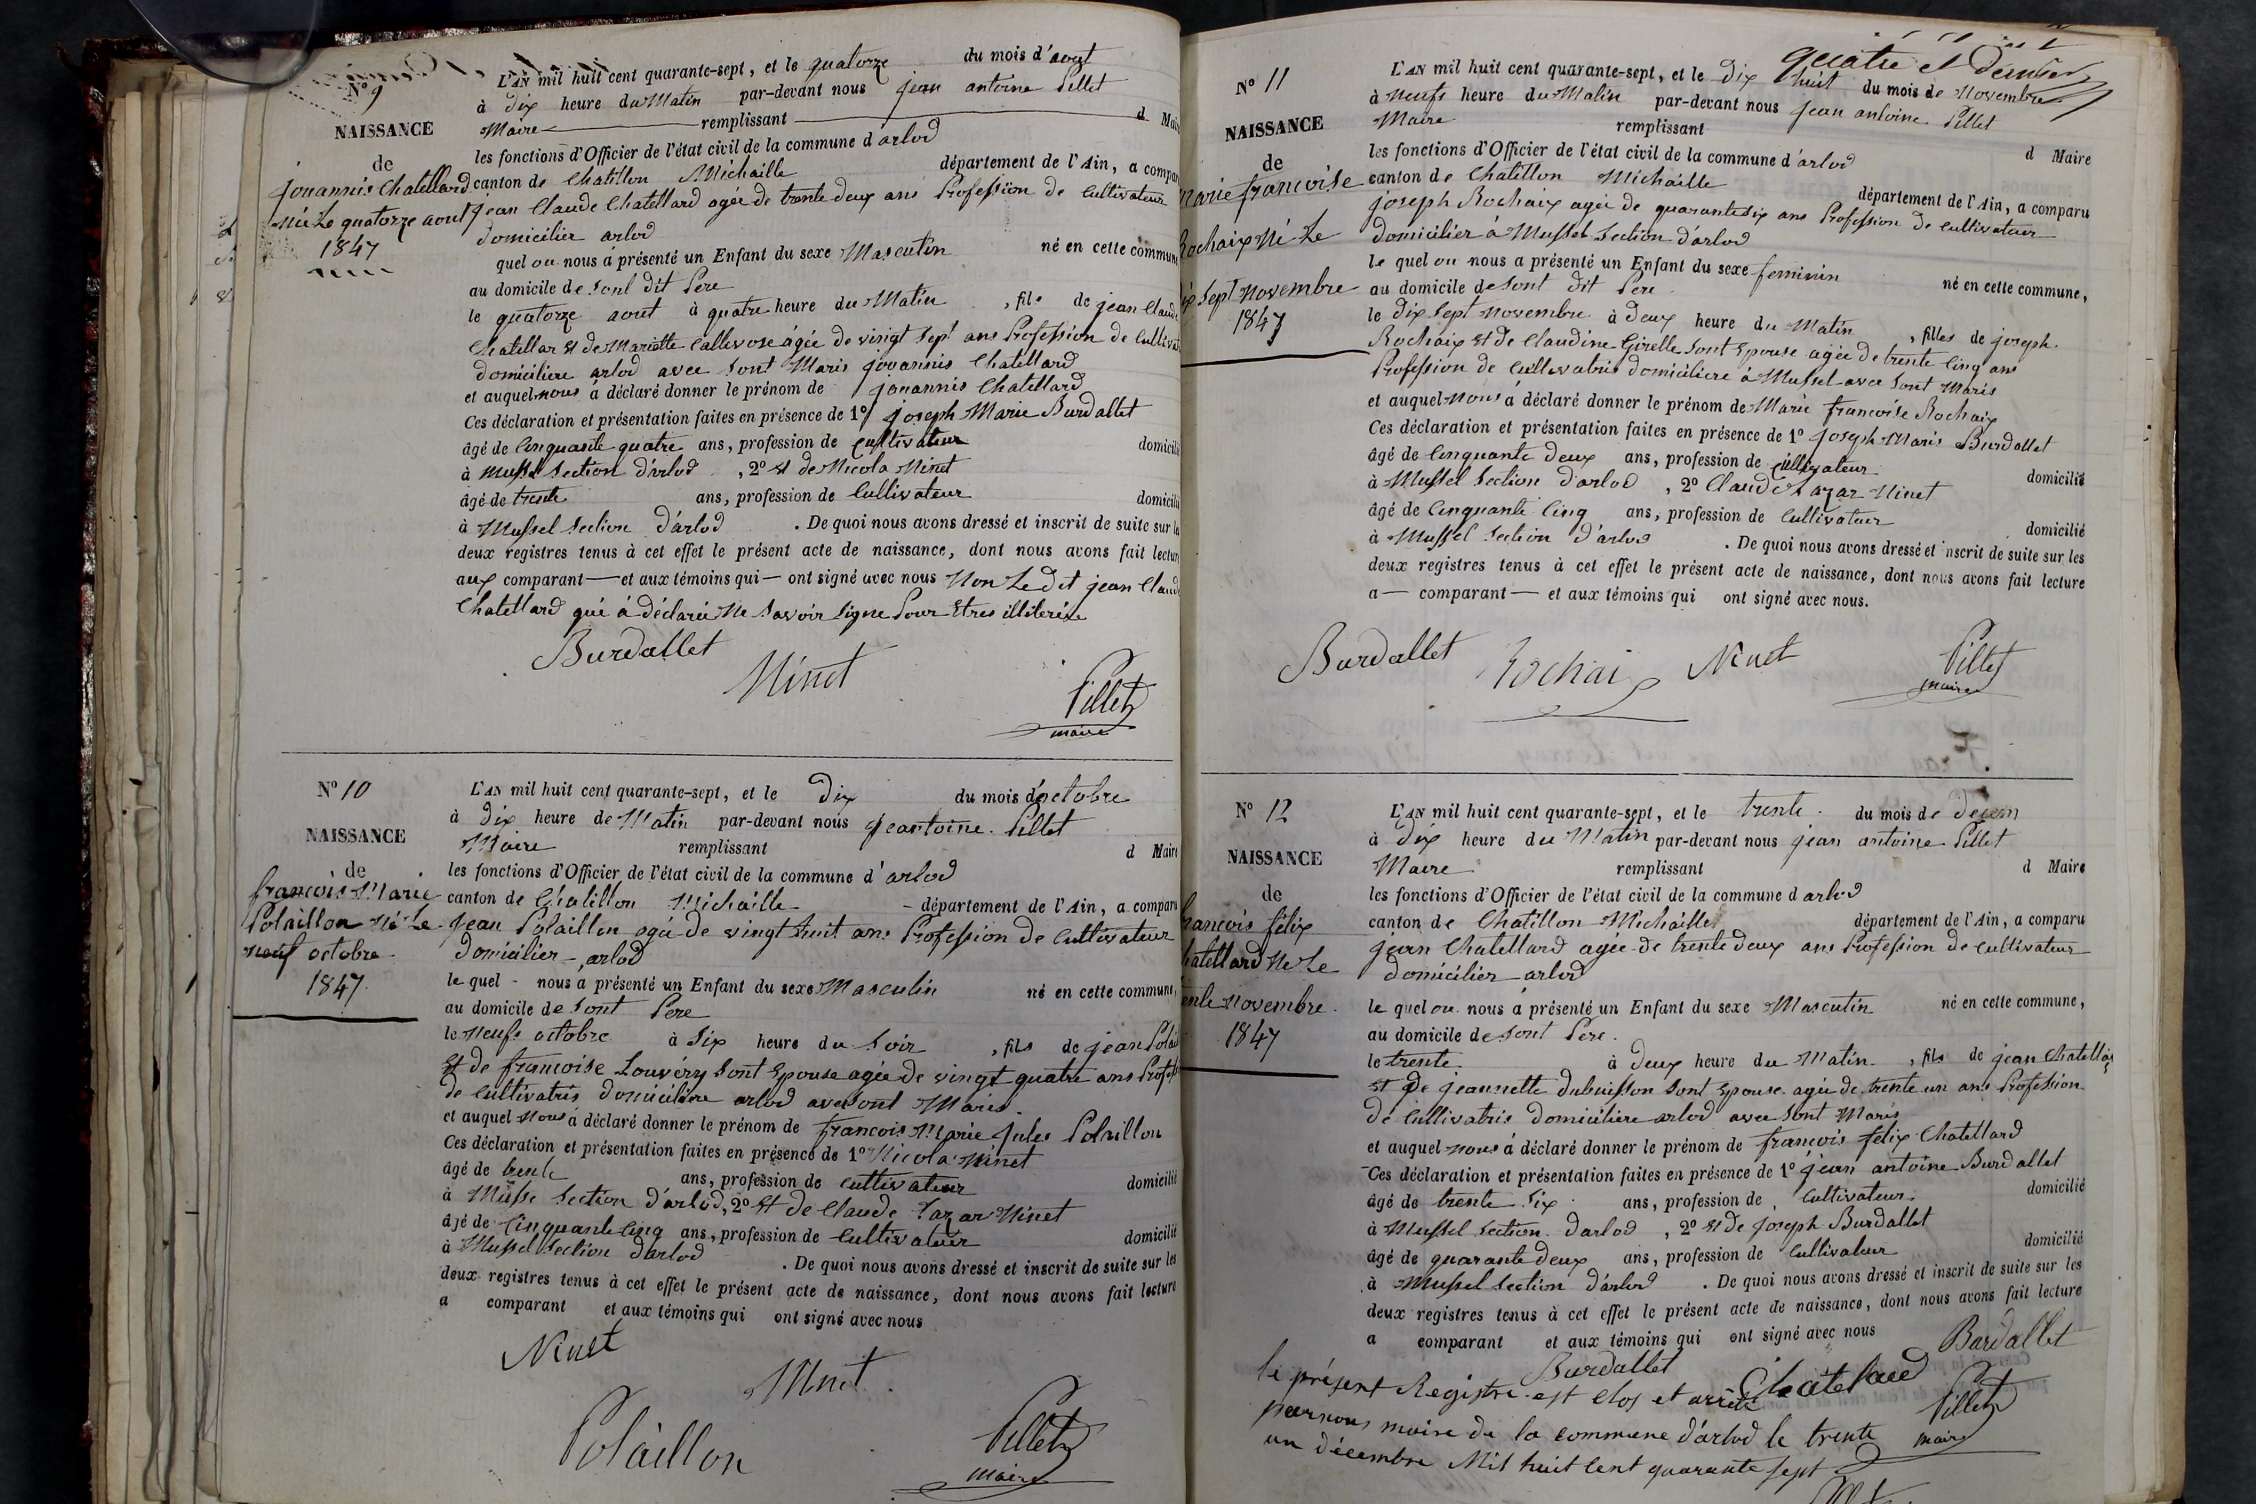 N° 9
NAISSANCE
de
jouannis Chatellard
Né Le quatorze aout
1847
L'AN mil huit cent quarante-sept, et le quatorze du mois d'aout
à dix heure du Matin par-devant nous jean antoine Pillet
Maire remplissant d Maire
les fonctions d'Officier de l'état civil de la commune d'arlod
canton de Chatillon Michaille département de l'Ain, a comparu
jean Claude Chatellard agée de trente deux ans Profession de Cultivateur
domicilier arlod
quel ou nous a présenté un Enfant du sexe Masculin né en cette commune
au domicile de Sont dit Pere
le quatorze aout à quatre heure du Matin, fils de jean Claude
Chatellar Et de Mariette Callevose âgée de vingt Sept ans Profession de Cultivat
domicilière arlod avec Sont Maris jouannis Chatellard
et auquel nous à déclaré donner le prénom de jouannis Chatellard
Ces déclaration et présentation faites en présence de 1° joseph Marie Burdallet
âgé de Cinquante quatre ans, profession de Cultivateur domicilié
à Mussel Section d'arlod, 2° Et de Nicola Ninet
âgé de trente ans, profession de Cultivateur domicilié
à Mussel Section d'arlod. De quoi nous avons dressé et inscrit de suite sur les
deux registres tenus à cet effet le présent acte de naissance, dont nous avons fait lecture
aux comparant — et aux témoins qui — ont signé avec nous Non Le dit jean Claude
Chatellard qui à déclarée Ne Savoir Signe Pour Etres illiterée
Burdallet
Ninet
Pillet
maire
N° 10
NAISSANCE
de
francois Marie
Polaillon Né Le
neuf octobre
1847
L'AN mil huit cent quarante-sept, et le Dix du mois d'octobre
à dix heure de Matin par-devant nous jeantoine Pillet
Maire remplissant d Maire
les fonctions d'Officier de l'état civil de la commune d'arlod
canton de Chatillon Michaille département de l'Ain, a comparu
jean Polaillon agée de vingt huit ans Profession de Cultivateur
domicilier arlod
le quel nous a présenté un Enfant du sexe Masculin né en cette commune,
au domicile de Sont Pere
le Neufs octobre à Six heure du Soir, fils de jean Polail
Et de francoise Louvéry Sont Epouse agée de vingt quatre ans Profess
de Cultivatris domicilière arlod avec Sont Maris
et auquel nous à déclaré donner le prénom de francois Marie jules Polaillon
Ces déclaration et présentation faites en présence de 1° Nicola Ninet
âgé de trente ans, profession de Cultivateur domicilié
à Musse Section d'arlod, 2° Et de Claude Lazar Ninet
âgé de Cinquante Cinq ans, profession de Cultivateur domicilié
à Mussel Section d'arlod. De quoi nous avons dressé et inscrit de suite sur les
deux registres tenus à cet effet le présent acte de naissance, dont nous avons fait lecture
a comparant et aux témoins qui ont signé avec nous
Ninet
Ninet
Polaillon
Pillet
maire
quatre et Dernier
N° 11
NAISSANCE
de
Marie francoise
Rochaix Né Le
dix Sept Novembre
1847
L'AN mil huit cent quarante-sept, et le Dix huit du mois de Novembre
à neufs heure du Matin par-devant nous jean antoine Pillet
Maire remplissant d Maire
les fonctions d'Officier de l'état civil de la commune d'arlod
canton de Chatillon Michaille département de l'Ain, a comparu
joseph Rochaix agée de quarante Six ans Profession de Cultivateur
domicilier à Mussel Section d'arlod
le quel ou nous a présenté un Enfant du sexe feminin né en cette commune,
au domicile de Sont dit Pere
le dix Sept Novembre à deux heure du Matin, filles de joseph
Rochaix Et de Claudine Girelle Sont Epouse agée de trente Cinq ans
Profession de Cultivatris domicilière à Mussel avec Sont Maris
et auquel nous à déclaré donner le prénom de Marie francoise Rochaix
Ces déclaration et présentation faites en présence de 1° joseph Maris Burdallet
âgé de Cinquante deux ans, profession de Cultivateur domicilié
à Mussel Section d'arlod, 2° Claude Lazar Ninet
âgé de Cinquante Cinq ans, profession de Cultivateur domicilié
à Mussel Section d'arlod. De quoi nous avons dressé et inscrit de suite sur les
deux registres tenus à cet effet le présent acte de naissance, dont nous avons fait lecture
a — comparant — et aux témoins qui ont signé avec nous.
Burdallet Rochaix Ninet Pillet
maire
N° 12
NAISSANCE
de
francois félix
hatellard Ne Le
ente Novembre
1847
L'AN mil huit cent quarante-sept, et le trente du mois de decem
à Dix heure du Matin par-devant nous jean antoine Pillet
Maire remplissant d Maire
les fonctions d'Officier de l'état civil de la commune d'arlod
canton de Chatillon Michaille département de l'Ain, a comparu
jean Chatellard agée de trente deux ans Profession de Cultivateur
domicilier arlod
le quel ou nous a présenté un Enfant du sexe Masculin né en cette commune,
au domicile de Sont Pere
le trente à deux heure du Matin, fils de jean Chatellar
Et de jeannette dubuisson Sont Epouse agée de trente un ans Profession
de Cultivatris domicilière arlod avec Sont Maris
et auquel nous à déclaré donner le prénom de francois félix Chatellard
Ces déclaration et présentation faites en présence de 1° jean antoine Burdallet
âgé de trente Six ans, profession de Cultivateur domicilié
à Mussel Section d'arlod, 2° Et de joseph Burdallet
âgé de quarante deux ans, profession de Cultivateur domicilié
à Mussel Section d'arlod. De quoi nous avons dressé et inscrit de suite sur les
deux registres tenus à cet effet le présent acte de naissance, dont nous avons fait lecture
a comparant et aux témoins qui ont signé avec nous
Burdallet
Burdallet
Chatelard
Pillet
maire
le présent Registre est clos et arrêté
par nous maire de la commune d'arlod le trente
un décembre Mil huit Cent quarante sept